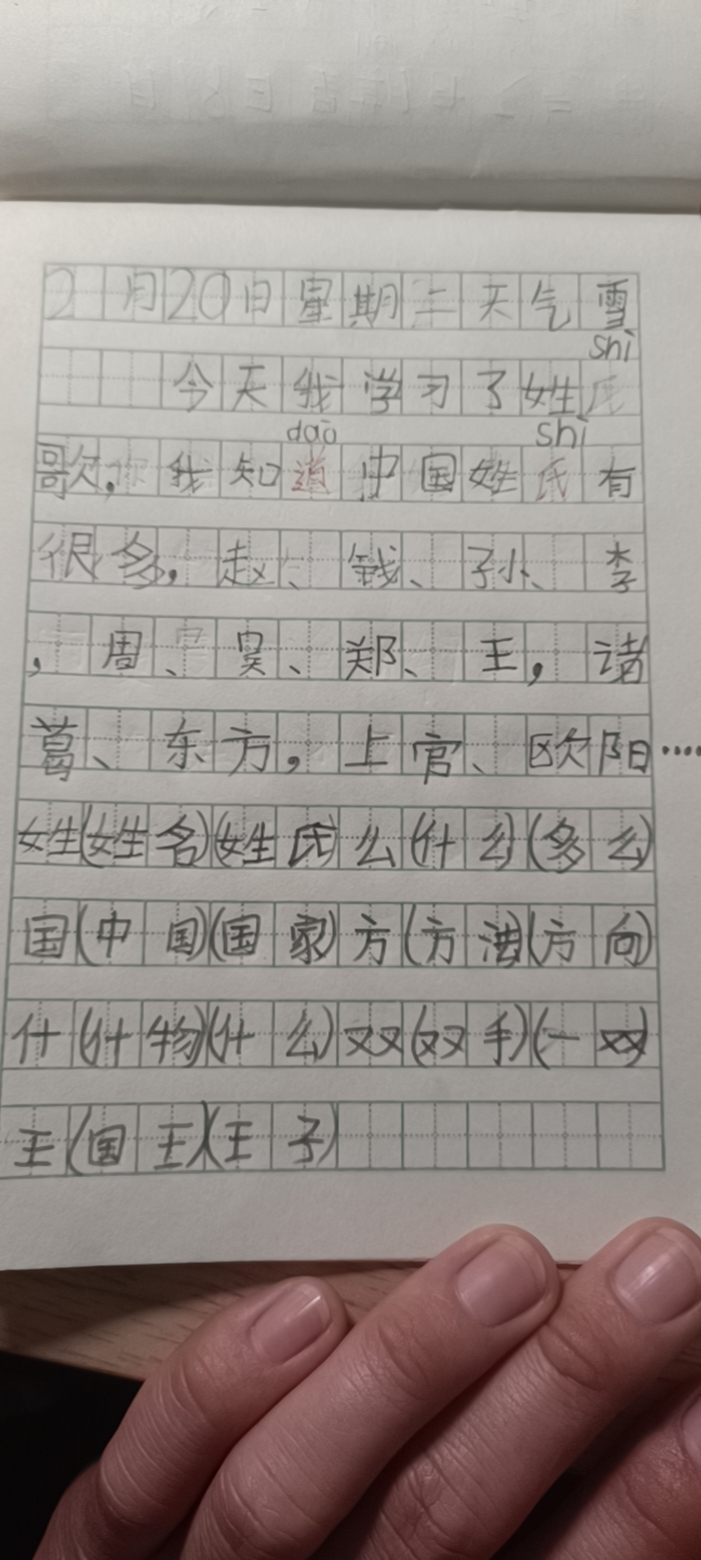 2月20日星期二天气雪
shì
今天我学习了姓氏
dào shì
歌,我知道中国姓氏有
很多,赵、钱、孙、李
,周、吴、郑、王,诸
葛、东方,上官、欧阳····
姓(姓名)(姓氏)么(什么)(多么)
国(中国)(国家)方(方法)(方向)
什(什物)(什么)双(双手)(一双)
王(国王)(王子)